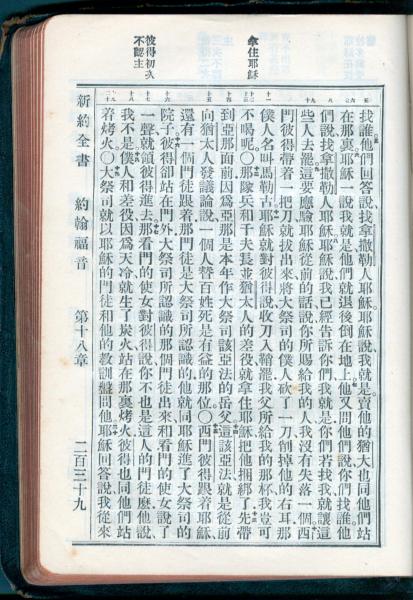 拿住耶穌
彼得初次
不認主
五
六
七
八
九
十
十一
十二
十三
十四
十五
十六
十七
十八
十九
找誰他們回答說找拿撒勒人耶穌耶穌說我就是賣他的猶大也同他們站
在那裏耶穌一說我就是他們就退後倒在地上他又問他們說你們找誰他
們說找拿撒勒人耶穌耶穌說我已經告訴你們我就是你們若找我就讓這
些人去罷這要應驗耶穌從前的話說你所賜給我的人我沒有失落一個西
門彼得帶着一把刀就拔出來將大祭司的僕人砍了一刀削掉他的右耳那
僕人名叫馬勒古耶穌就對彼得說收刀入鞘罷我父所給我的那杯我豈可
不喝呢○那隊兵和千夫長並猶太人的差役就拿住耶穌把他捆綁了先帶
到亞那面前因爲亞那是本年作大祭司該亞法的岳父這該亞法就是從前
向猶太人發議論說一個人替百姓死是有益的那位○西門彼得跟着耶穌
還有一個門徒跟着那門徒是大祭司所認識的他就同耶穌進了大祭司的
院子彼得卻站在門外大祭司所認識的那個門徒出來和看門的使女說了
一聲就領彼得進去那看門的使女對彼得說你不也是這人的門徒麼他說
我不是僕人和差役因爲天冷就生了炭火站在那裏烤火彼得也同他們站
着烤火○大祭司就以耶穌的門徒和他的教訓盤問他耶穌回答說我從來
新約全書 約翰福音 第十八章 二百三十九